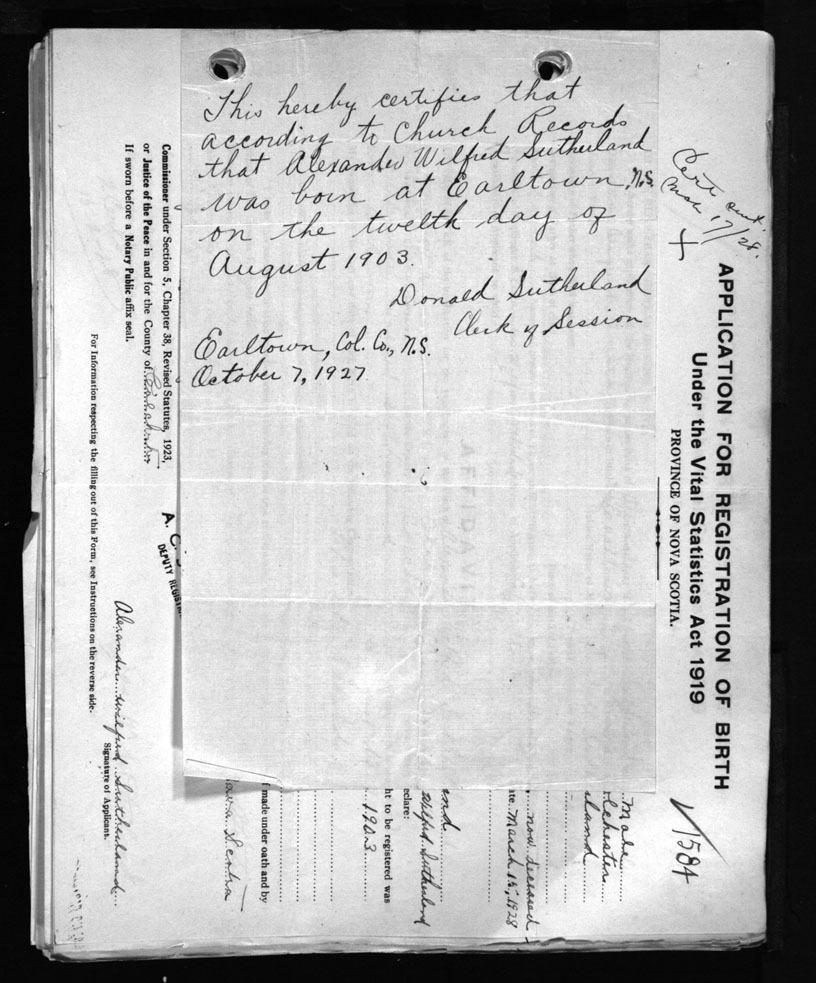 This hereby certifies that
according to Church Records
that Alexander Wilfred Sutherland
was born at Earltown, N.S.
on the twelth day of
August 1903.
Donald Sutherland
Clerk of Session
Earltown, Col. Co., N.S.
October 7, 1927.
Cert sent.
Mar 17/28.
APPLICATION FOR REGISTRATION OF BIRTH
Under the Vital Statistics Act 1919
PROVINCE OF NOVA SCOTIA.
1584
Male
land
now deceased
March 15, 1928
AFFIDAVIT
ind
Wilfred Sutherland
eclare:
ht to be registered was
1903
f made under oath and by
Nova Scotia
A. C.
DEPUTY REGISTRA
Commissioner under Section 5, Chapter 38, Revised Statutes, 1923,
or Justice of the Peace in and for the County of
If sworn before a Notary Public affix seal.
Alexander Wilfred Sutherland
Signature of Applicants.
For Information respecting the filling out of this Form, see Instructions on the reverse side.